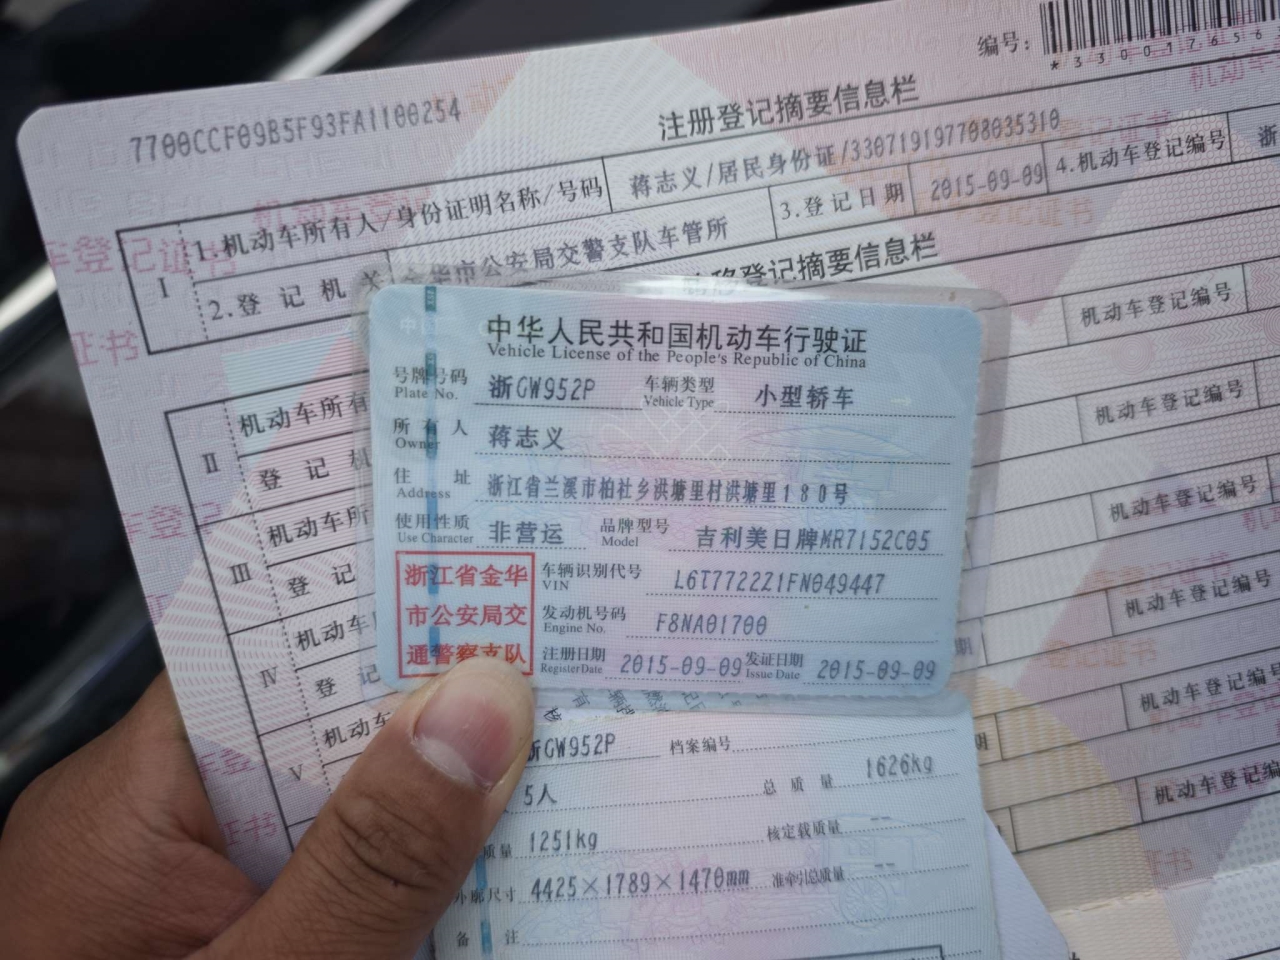 编号:
*330017656
7700CCF09B5F93FA1100254
注册登记摘要信息栏
I
1.机动车所有人/身份证明名称/号码
蒋志义/居民身份证/330719197708035310
2.登 记 机 关
金华市公安局交警支队车管所
3.登记日期
2015-09-09
4.机动车登记编号
浙
登记摘要信息栏
机动车登记编号
II
机动车所有
登 记 机
机动车登记编号
III
机动车所
登 记
机动车登记编号
IV
机动车
登 记
机动车登记编号
V
机动车
机动车登记编
中华人民共和国机动车行驶证
Vehicle License of the People's Republic of China
号牌号码 浙GW952P 车辆类型 小型轿车
Plate No. Vehicle Type
所 有 人 蒋志义
Owner
住 址 浙江省兰溪市柏社乡洪塘里村洪塘里180号
Address
使用性质 非营运 品牌型号 吉利美日牌MR7152C05
Use Character Model
浙江省金华
市公安局交
通警察支队
车辆识别代号 L6T7722Z1FN049447
VIN
发动机号码 F8NA01700
Engine No.
注册日期 2015-09-09 发证日期 2015-09-09
Register Date Issue Date
GW952P 档案编号
5人 总 质 量 1626kg
质量 1251kg 核定载质量 --
外廓尺寸 4425×1789×1470mm 准牵引总质量 --
备 注